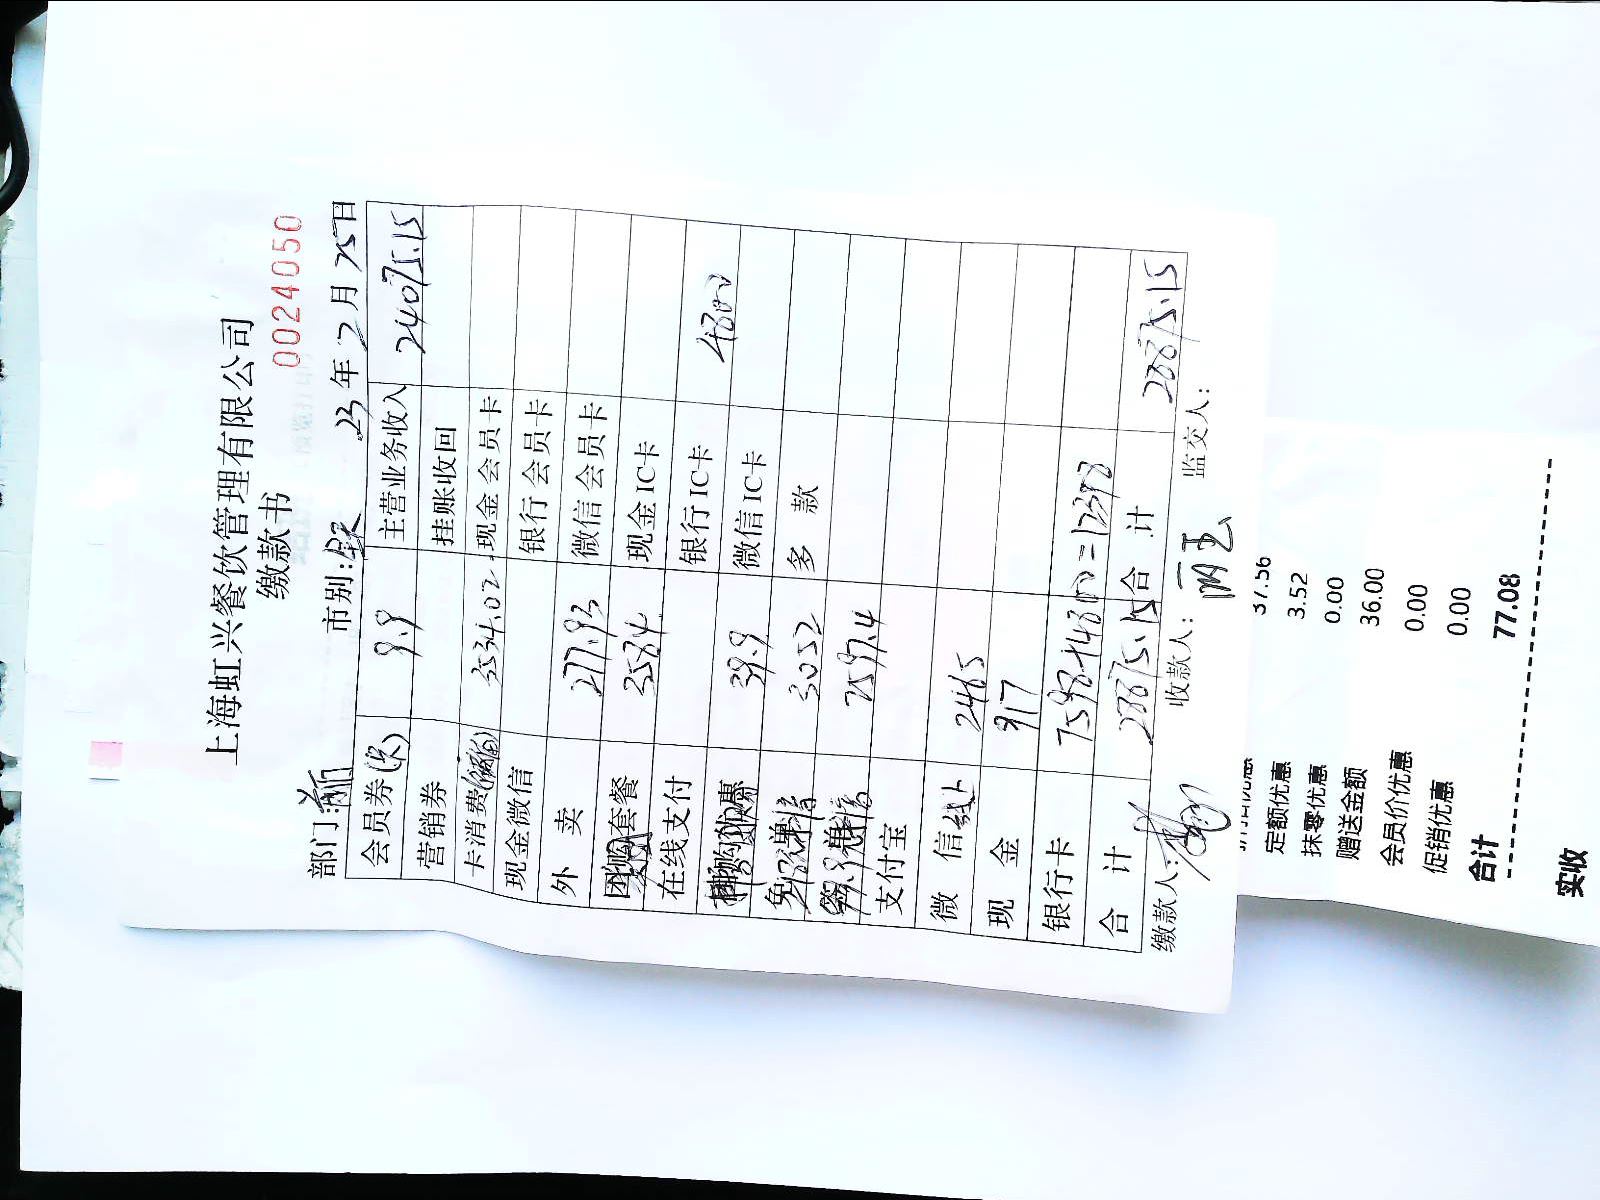 上海虹兴餐饮管理有限公司
缴款书
0024050
部门: 市别: 23年2月25日
会员券 9.9 主营业务收入 24075.15
营销券 挂账收回
卡消费 3534.02 现金会员卡
现金微信 银行会员卡
外 卖 277.93 微信会员卡
套餐 3584 现金IC卡
在线支付 银行IC卡 4800
39.9 微信IC卡
3052 多 款
2597.4
支付宝
微 信 2465
现 金 917
银行卡 7598+4800=12398
合 计 28875.15 合 计 28875.15
缴款人: 收款人: 监交人:
37.56
定额优惠 3.52
抹零优惠 0.00
赠送金额 36.00
会员价优惠 0.00
促销优惠 0.00
合计 77.08
实收